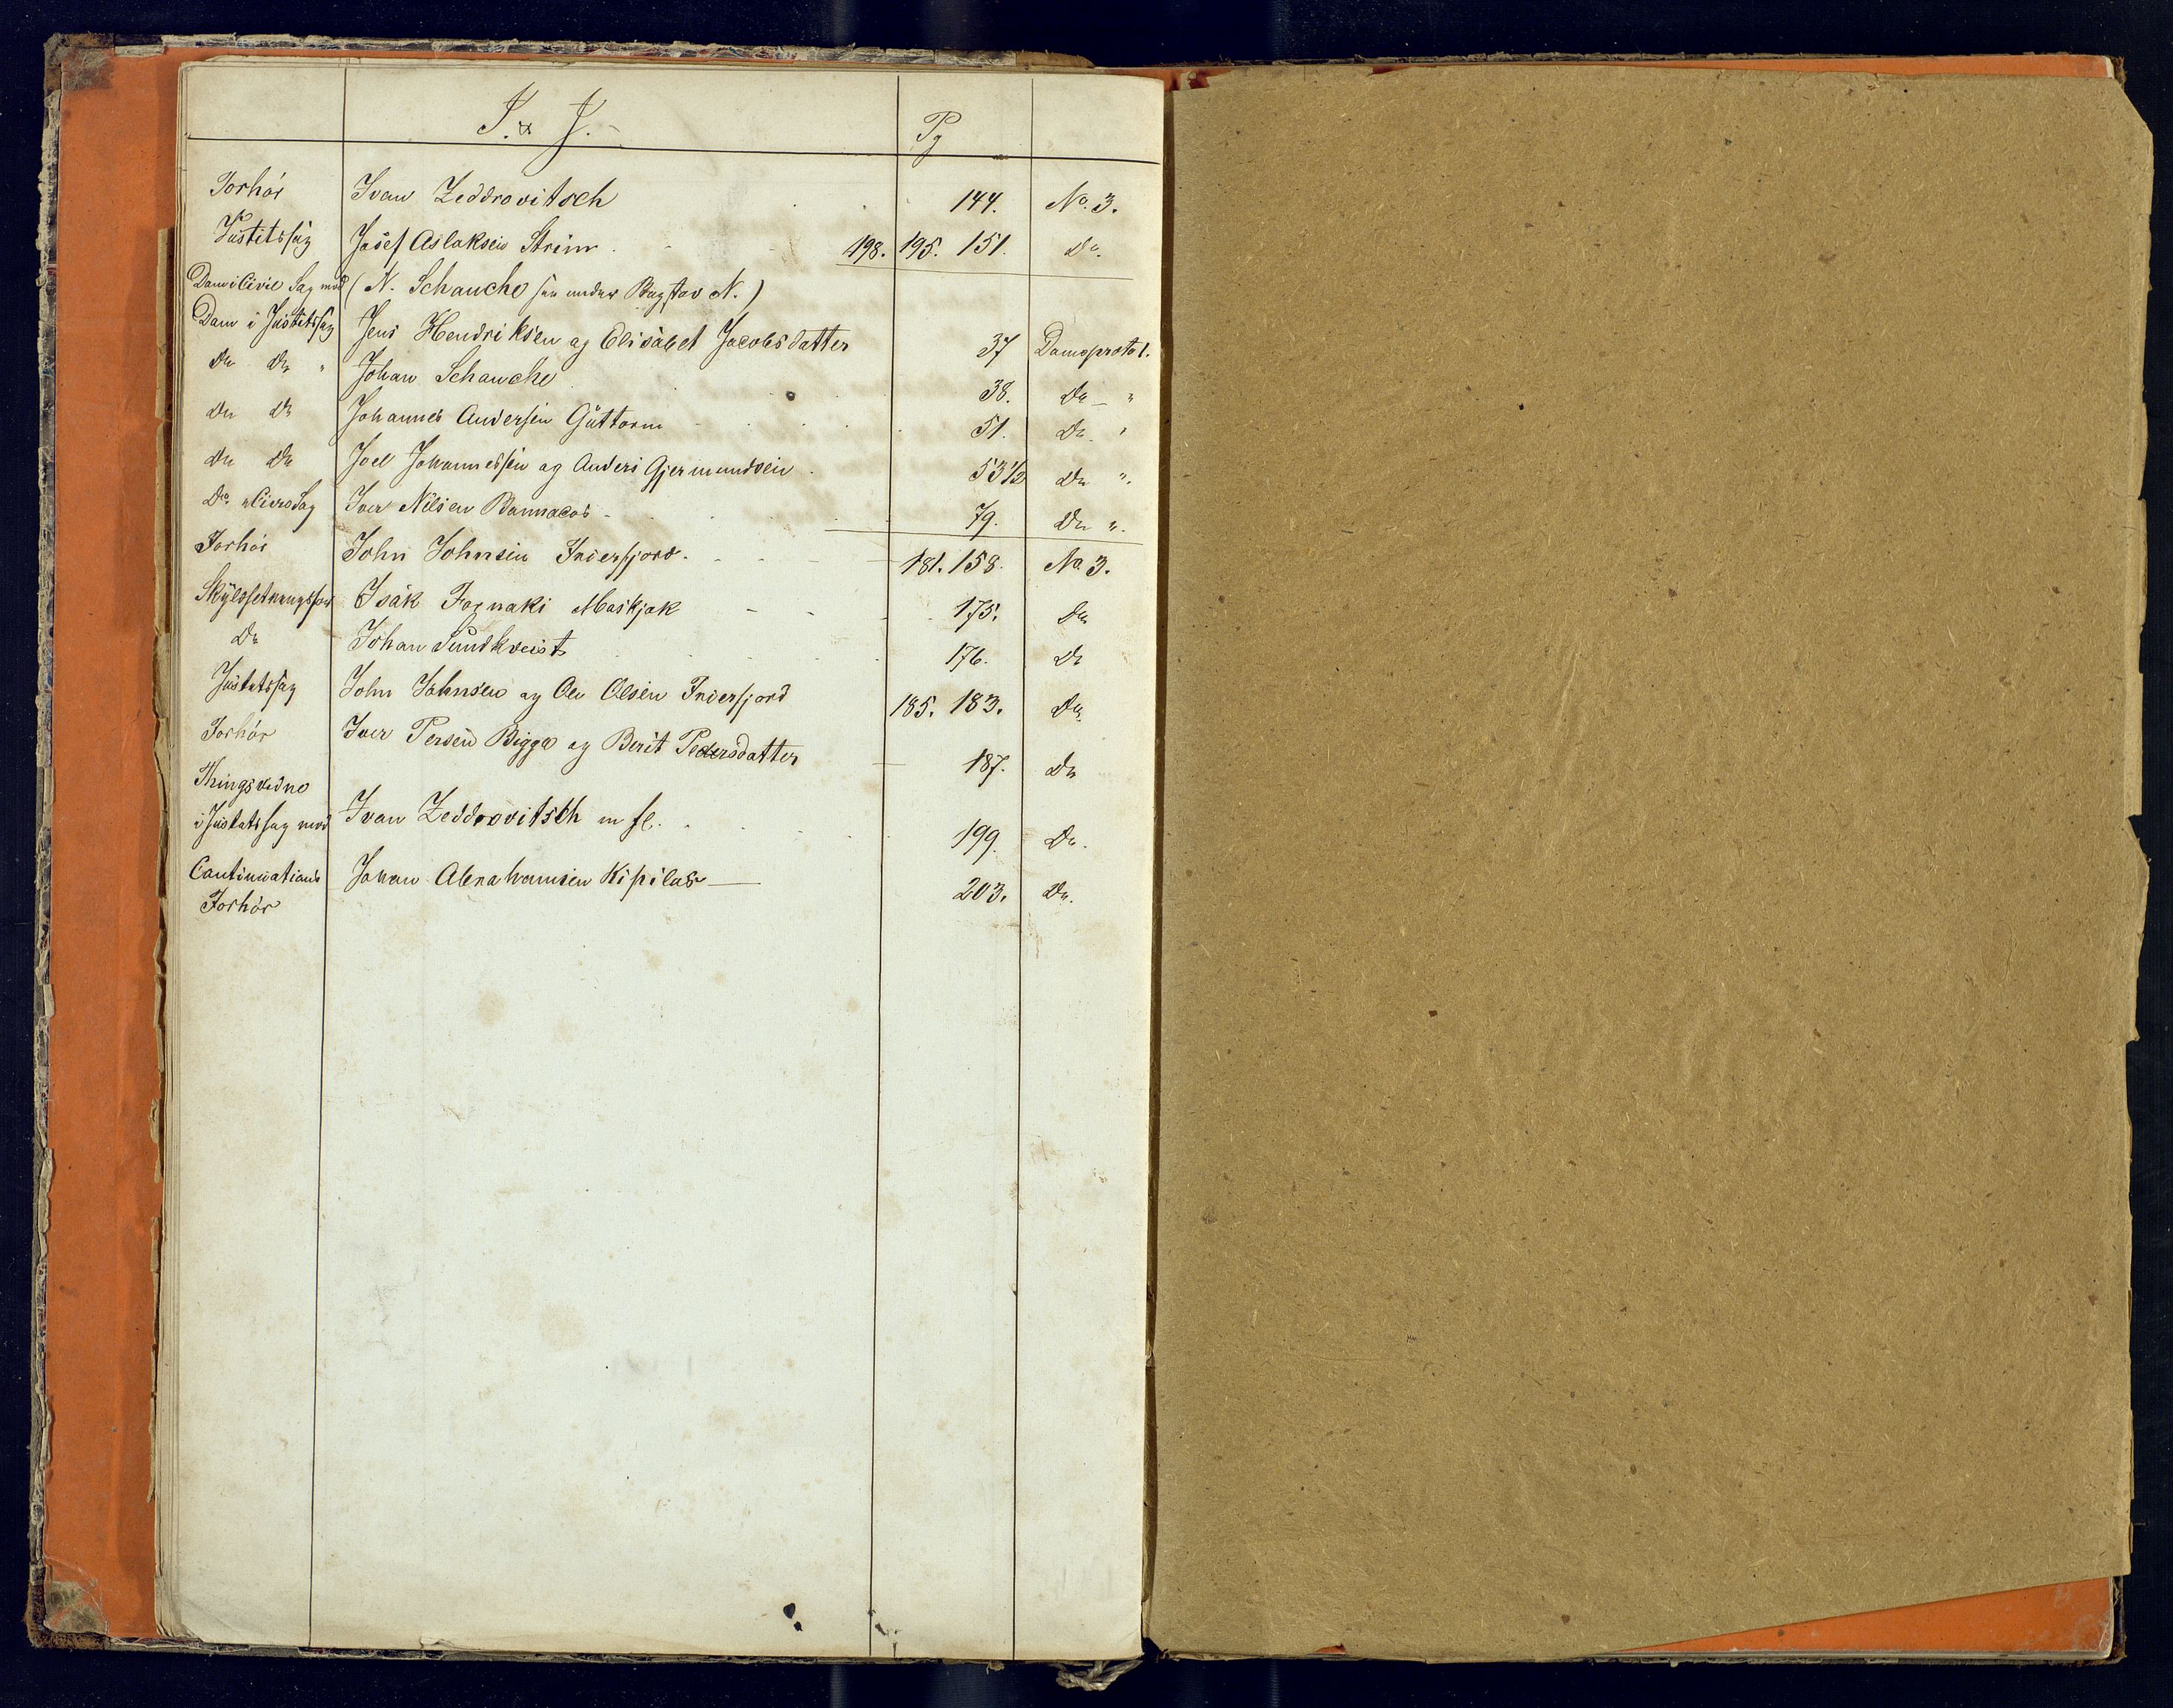 I. & J. Pg
Forhör Ivan Zeddrovitsch 144. No. 3.
Justitssag Josef Aslaksen Strim 198. 195. 151. Do.
Dom i Civil Sag mod (N. Schanche see under Bogstav N.)
Dom i Justitssag Jens Hendriksen og Elisabet Jacobsdatter 37 Domsprotol.
Do Do " Johan Schanche 38. Do "
Do Do Johannes Andersen Guttorm 51. Do "
Do Do Joel Johannessen og Anders Gjermundsen 53 1/2 Do ".
Do. i Civil Sag Iver Nilsen 79. Do ".
Forhör John Johnsen Indersfjord. 181. 158. No 3.
Isak Fognaki Maskjok 175. Do
Do Johan Sundkveist 176. Do
Justitssag John Johnsen og Ole Olsen Indersfjord 185. 183. Do
Forhör Iver Persen Bigga og Berit Pedersdatter 187. Do
Thingsvidne
i Justitssag mod Ivan Zeddrovitsch m fl. 199. Do.
Continuations Johan Abrahamsen Kipilas 203. Do.
Forhör